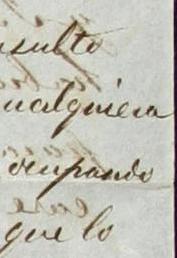 nsulto
ualquiera
ocupando
que lo